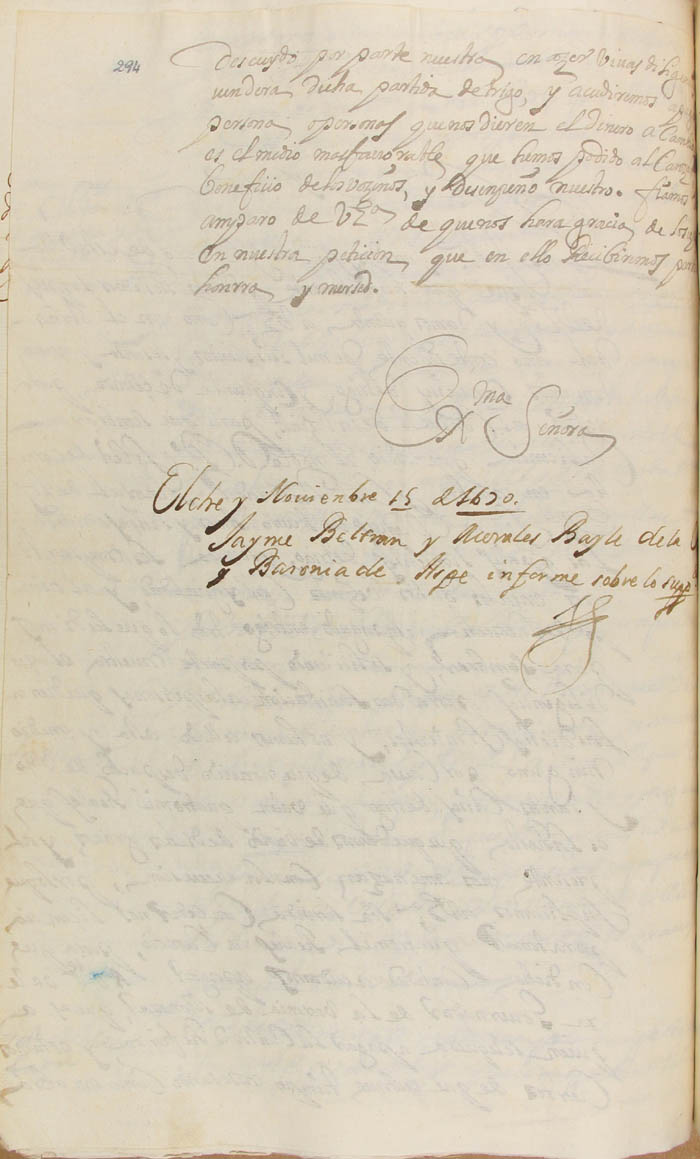 294
Descuydo por parte nuestra en azer vivas dilig
vendera dicha partida de trigo, y acudiremos
persona, o personas que nos dieren el dinero a Cam
es el medio mas favorable, que hemos podido al Canz
beneficio de los vezinos, y Desenpeño nuestro. fiamos
amparo de V. Exª de que nos hara gracia de
en nuestra peticion, que en ello Recibiremos
honrra, y mersed.
Exma Señora
Elche y Noviembre 15 de 1670.
Jayme Beltran y Morales Bayle de la
y Baronia de Aspe informe sobre lo supdo